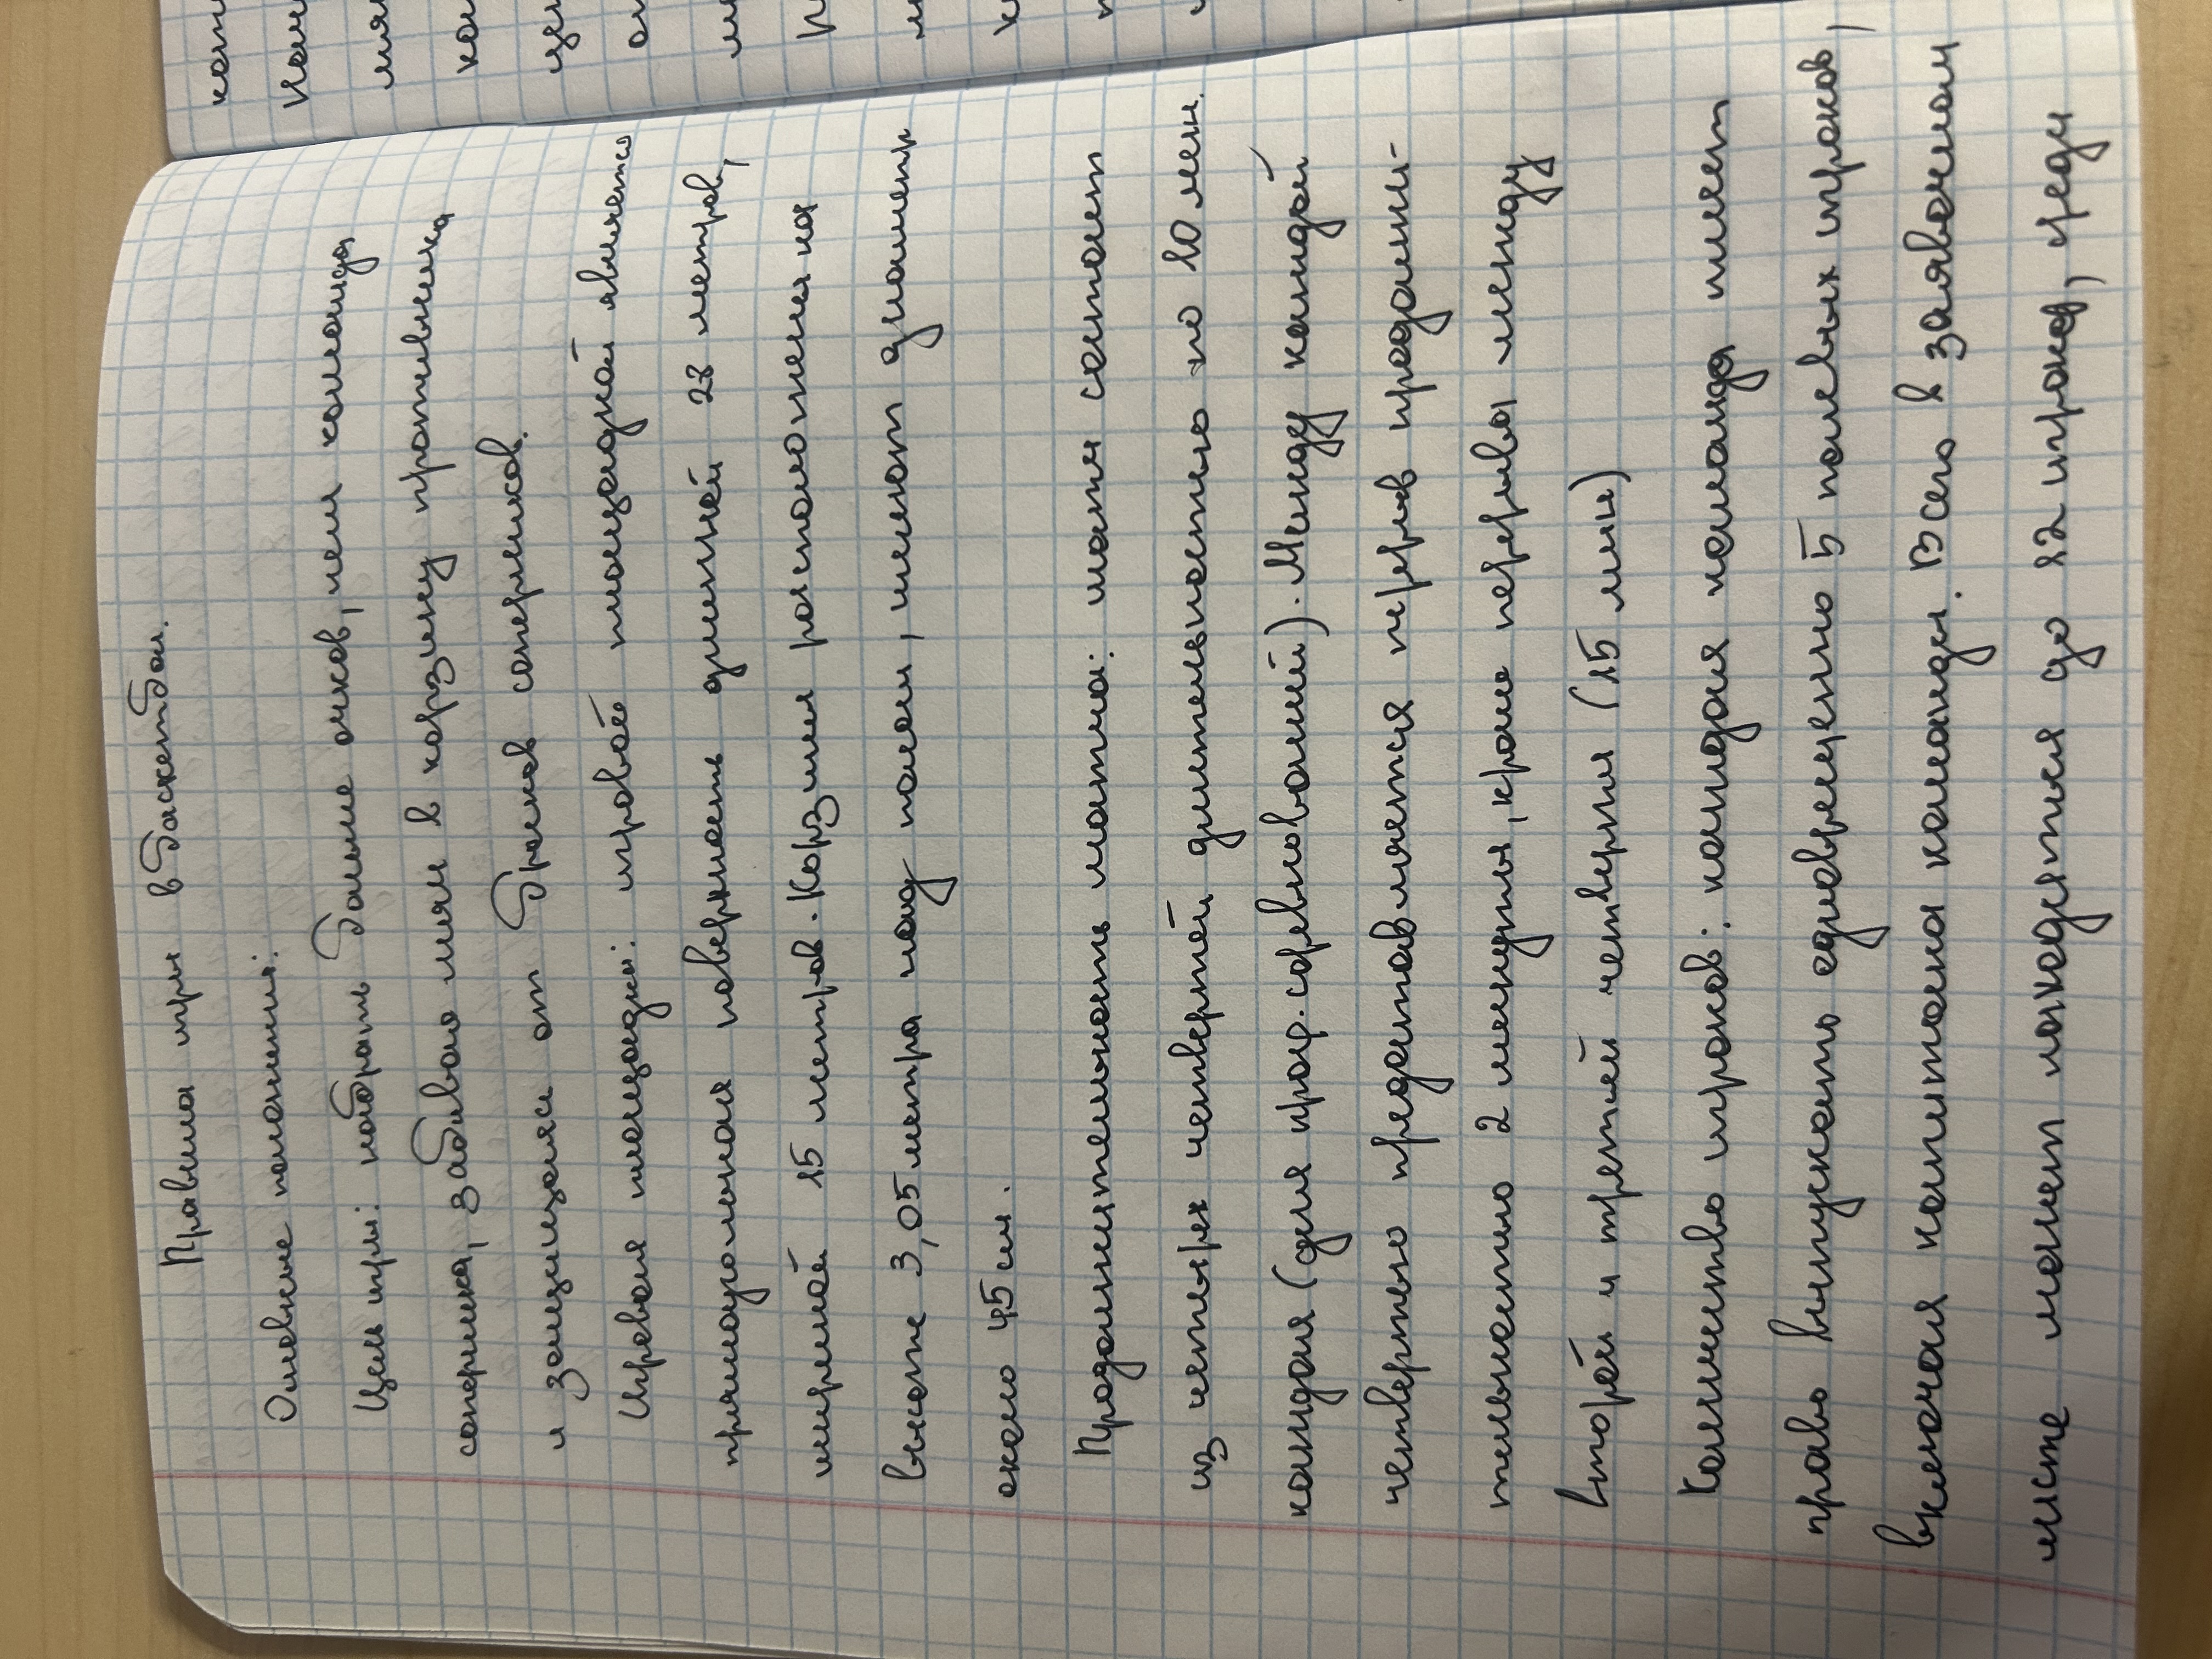 Правила игры в баскетбол.
Основные положения:
Цель игры: набрать больше очков, чем команда
соперника, забивая мяч в корзину противника
и защищаясь от бросков соперников.
Игровая площадка: игровой площадкой является
прямоугольная поверхность длинной 28 метров,
шириной 15 метров. Корзины расположены на
высоте 3,05 метра над полом, имеют диаметр
около 45 см.
Продолжительность матча: матч состоит
из четырех четвертей длительностью по 10 мин.
каждая (для проф. соревнований). Между каждой
четвертью предоставляется перерыв продолжи-
тельностью 2 минуты, кроме перерыва между
второй и третьей четверти (15 мин)
Количество игроков: каждая команда имеет
право выпускать одновременно 5 полевых игроков,
включая капитана команды. Всего в заявочном
листе может находится до 12 игроков, среди